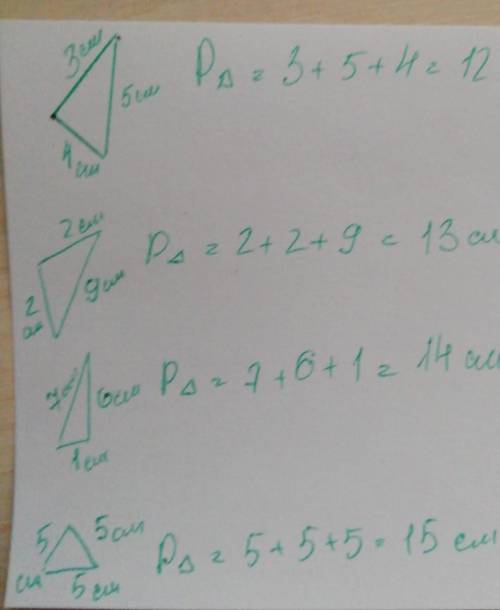 3см
5см
4см
P△ = 3 + 5 + 4 = 12
2см
2
см
9см
P△ = 2 + 2 + 9 = 13 см
7см
6см
1см
P△ = 7 + 6 + 1 = 14 см
5
см
5см
5см
P△ = 5 + 5 + 5 = 15 см